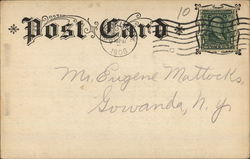 10
Post Card
Mr. Eugene Mattocks,
Gowanda, N. Y.